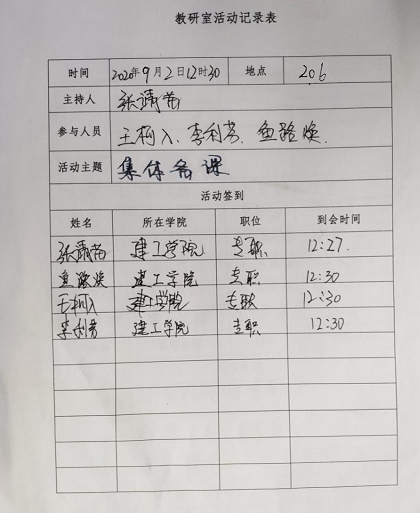 教研室活动记录表
时间 2020年9月2日12时30 地点 206
主持人 张靖
参与人员 王柯入、李利芳、鱼
活动主题 集体备课
活动签到
姓名 所在学院 职位 到会时间
张靖 建工学院 专职 12:27
鱼 建工学院 专职 12:30
王柯入 建工学院 专职 12:30
李利芳 建工学院 专职 12:30